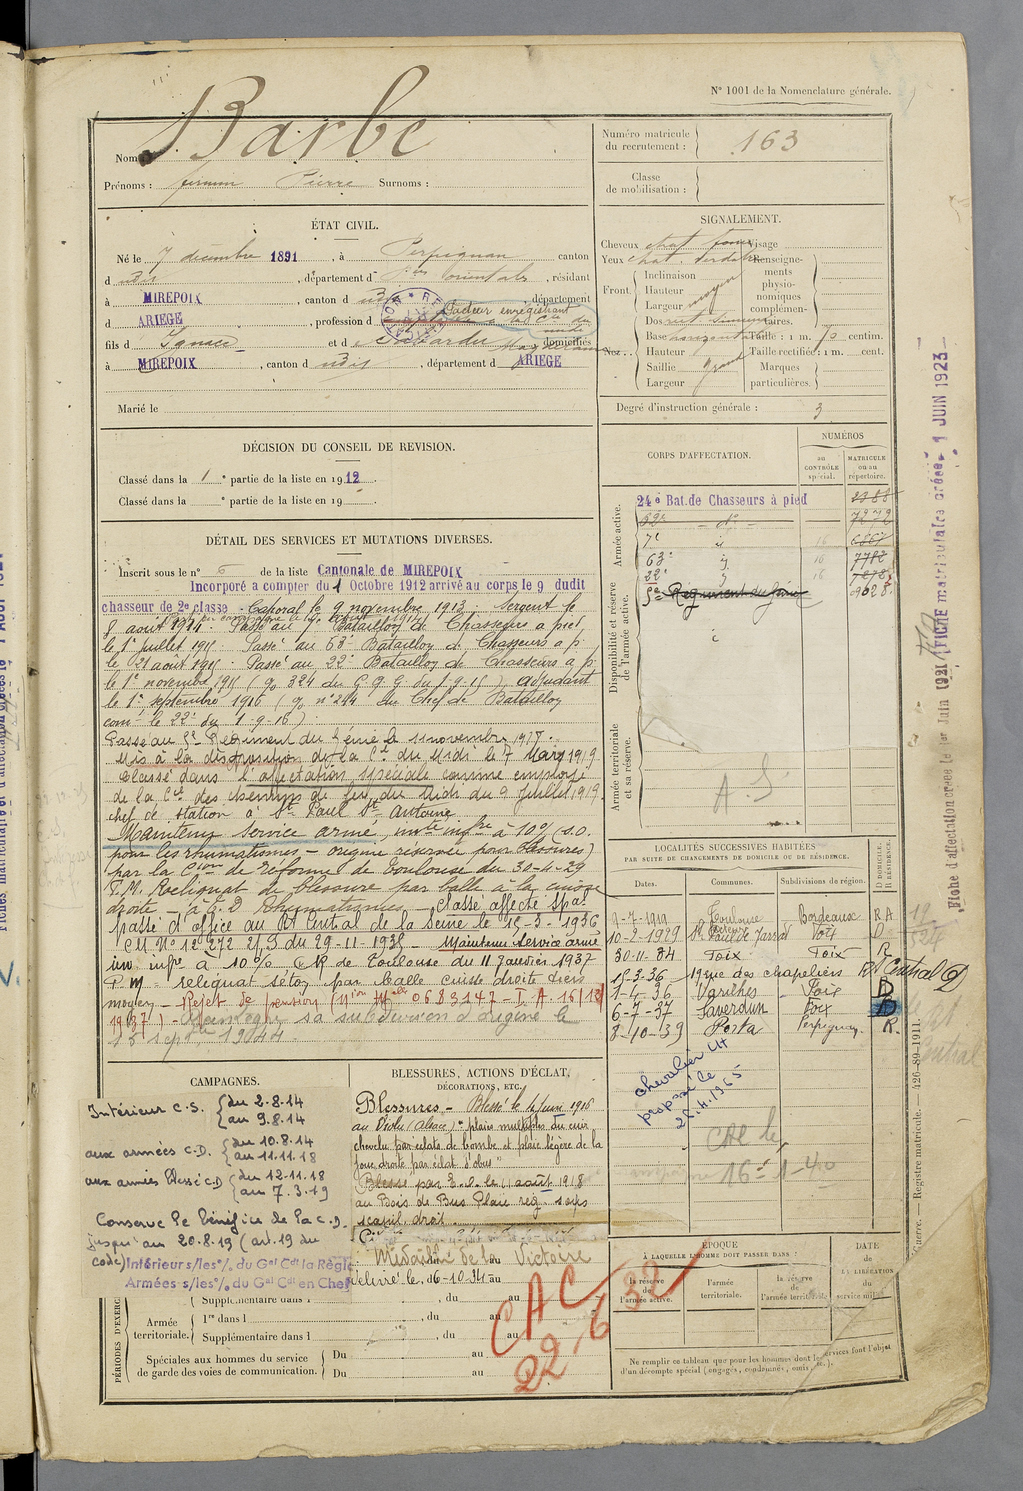 N° 1001 de la Nomenclature générale.
Nom : Barbe
Prénoms : Firmin Pierre Surnoms :
Numéro matricule
du recrutement : 163
Classe
de mobilisation :
ÉTAT CIVIL.
Né le 7 décembre 1891, à Perpignan canton
d udit, département d Pées Orientales, résidant
à MIREPOIX, canton d udit, département
d ARIEGE, profession d Facteur enregistrant
à la Cie du midi
fils d Ignace et d domiciliés
à MIREPOIX, canton d udit, département d ARIEGE
Marié le
SIGNALEMENT.
Cheveux chat. foncé Visage
Yeux chat. verdâtre Renseigne-
ments
physio-
nomiques
complémen-
taires.
Front. Inclinaison
Hauteur
Largeur moyen
Nez. Dos rect. sinueux
Base horizontale Taille : 1 m. 70 centim.
Hauteur Taille rectifiée : 1 m. cent.
Saillie grand Marques
Largeur particulières.
Degré d'instruction générale : 3
DÉCISION DU CONSEIL DE REVISION.
Classé dans la 1e partie de la liste en 1912.
Classé dans la e partie de la liste en 19
CORPS D'AFFECTATION.
NUMÉROS
au
CONTRÔLE
spécial.
MATRICULE
ou au
répertoire.
Armée active.
Disponibilité et réserve
de l'armée active.
Armée territoriale
et sa réserve.
24e Bat. de Chasseurs à pied 2388
52e do 7272
7e d 16 6867
63e d 16 7787
22e d 16 7878
5e Régiment du Génie 9628
A. S
DÉTAIL DES SERVICES ET MUTATIONS DIVERSES.
Inscrit sous le n° 6 de la liste Cantonale de MIREPOIX
Incorporé a compter du 1 Octobre 1912 arrivé au corps le 9 dudit
chasseur de 2e classe - Caporal le 9 novembre 1913. Sergent le
8 août 1914. Passé au 7e Bataillon de Chasseurs a pied
le 1er juillet 1915. Passé au 63e Bataillon de Chasseurs a p.
le 21 août 1915. Passé au 22e Bataillon de Chasseurs a p.
le 1er novembre 1915 ( adjudant
le 1er septembre 1916 (o/ n° 244 du Chef de Bataillon
comt le 22e du 1-9-16).
Passé au 5e Régiment du Génie le 11 novembre 1917.
Mis à la disposition de la Cie du Midi le 7 Mars 1919
Classé dans l'affectation spéciale comme employé
de la Cie des chemins de fer du Midi du 9 Juillet 1919
chef de station à St Paul St Antoine
Maintenu Service armé, invte infre à 10% (s.o.
pour les rhumatismes - origine réservée pour blessures)
par la Cion de réforme de Toulouse du 30-4-29
P.M. Reliquat de blessure par balle à la cuisse
droite - Rhumatismes - Classé affecté spal
passé d'office au Rt Central de la Seine le 15-3-1936
CM N° 12.272 2/3 du 29-11-1935 - Maintenu Service armé
inv. infre à 10% CR de Toulouse du 11 Janvier 1937
P.M = reliquat séton par balle cuisse droite tiers
moyen - Rejet de pension (Min
1937) - Réintègre sa subdivision d'origine le
15 septbre 1944.
LOCALITÉS SUCCESSIVES HABITÉES
PAR SUITE DE CHANGEMENTS DE DOMICILE OU DE RÉSIDENCE.
Dates. Communes. Subdivisions de région. D DOMICILE. R RÉSIDENCE.
9-7-1919 Toulouse Bordeaux R A
10-2-1929 St Paul de Jarrat Foix D
30-11-34 Foix Foix R
15-3-36 19 rue des chapeliers Rt Central D
1-4-36 Varilhes Foix D
6-7-37 Saverdun Foix D
8-10-39 Porta Perpignan R.
chevalier LH
proposé le
28.4.1965
16-1-40
CAMPAGNES.
Intérieur C.S. du 2-8-14
au 9.8.14
aux armées C.D. du 10.8.14
au 11.11.18
aux armées Blessé C.D du 12-11.18
au 7.3.19
Conserve le bénéfice de la C.D.
jusqu'au 20.8.19 (art. 19 du
code)
Intérieur s/les o/o du Gal Cdt la Règle
Armées s/les o/o du Gal Cdt en Chef
BLESSURES, ACTIONS D'ÉCLAT,
DÉCORATIONS, ETC.
Blessures - Blessé le 4 Juin 1916
au Violu (Alsace) "plaies multiples du cuir
chevelu par éclats de bombe et plaie légère de la
joue droite par éclat d'obus"
Blessé par E.O. le 1 août 1918
au Bois de Bus Plaie rég. sous
scapul. droit.
Médaille de la Victoire
délivrée le 16-10-34
PÉRIODES D'EXERC
Supplémentaire dans l , du au
Armée
territoriale.
1re dans l , du au
Supplémentaire dans l , du au
Spéciales aux hommes du service
de garde des voies de communication.
Du au
Du au
CAC
22-6-32
ÉPOQUE
À LAQUELLE L'HOMME DOIT PASSER DANS :
la réserve
de
l'armée active.
l'armée
territoriale.
la réserve
de
l'armée territoriale.
DATE
de
LA LIBÉRATION
du
service militaire.
Ne remplir ce tableau que pour les hommes dont les services font l'objet
d'un décompte spécial (engagés, condamnés, omis, etc.).
Guerre. — Registre matricule. — 426-89-1911.
Fiche d'affectation créée le 1er Juin 1921 (FICHE matriculaire créée - 1 JUIN 1923 -